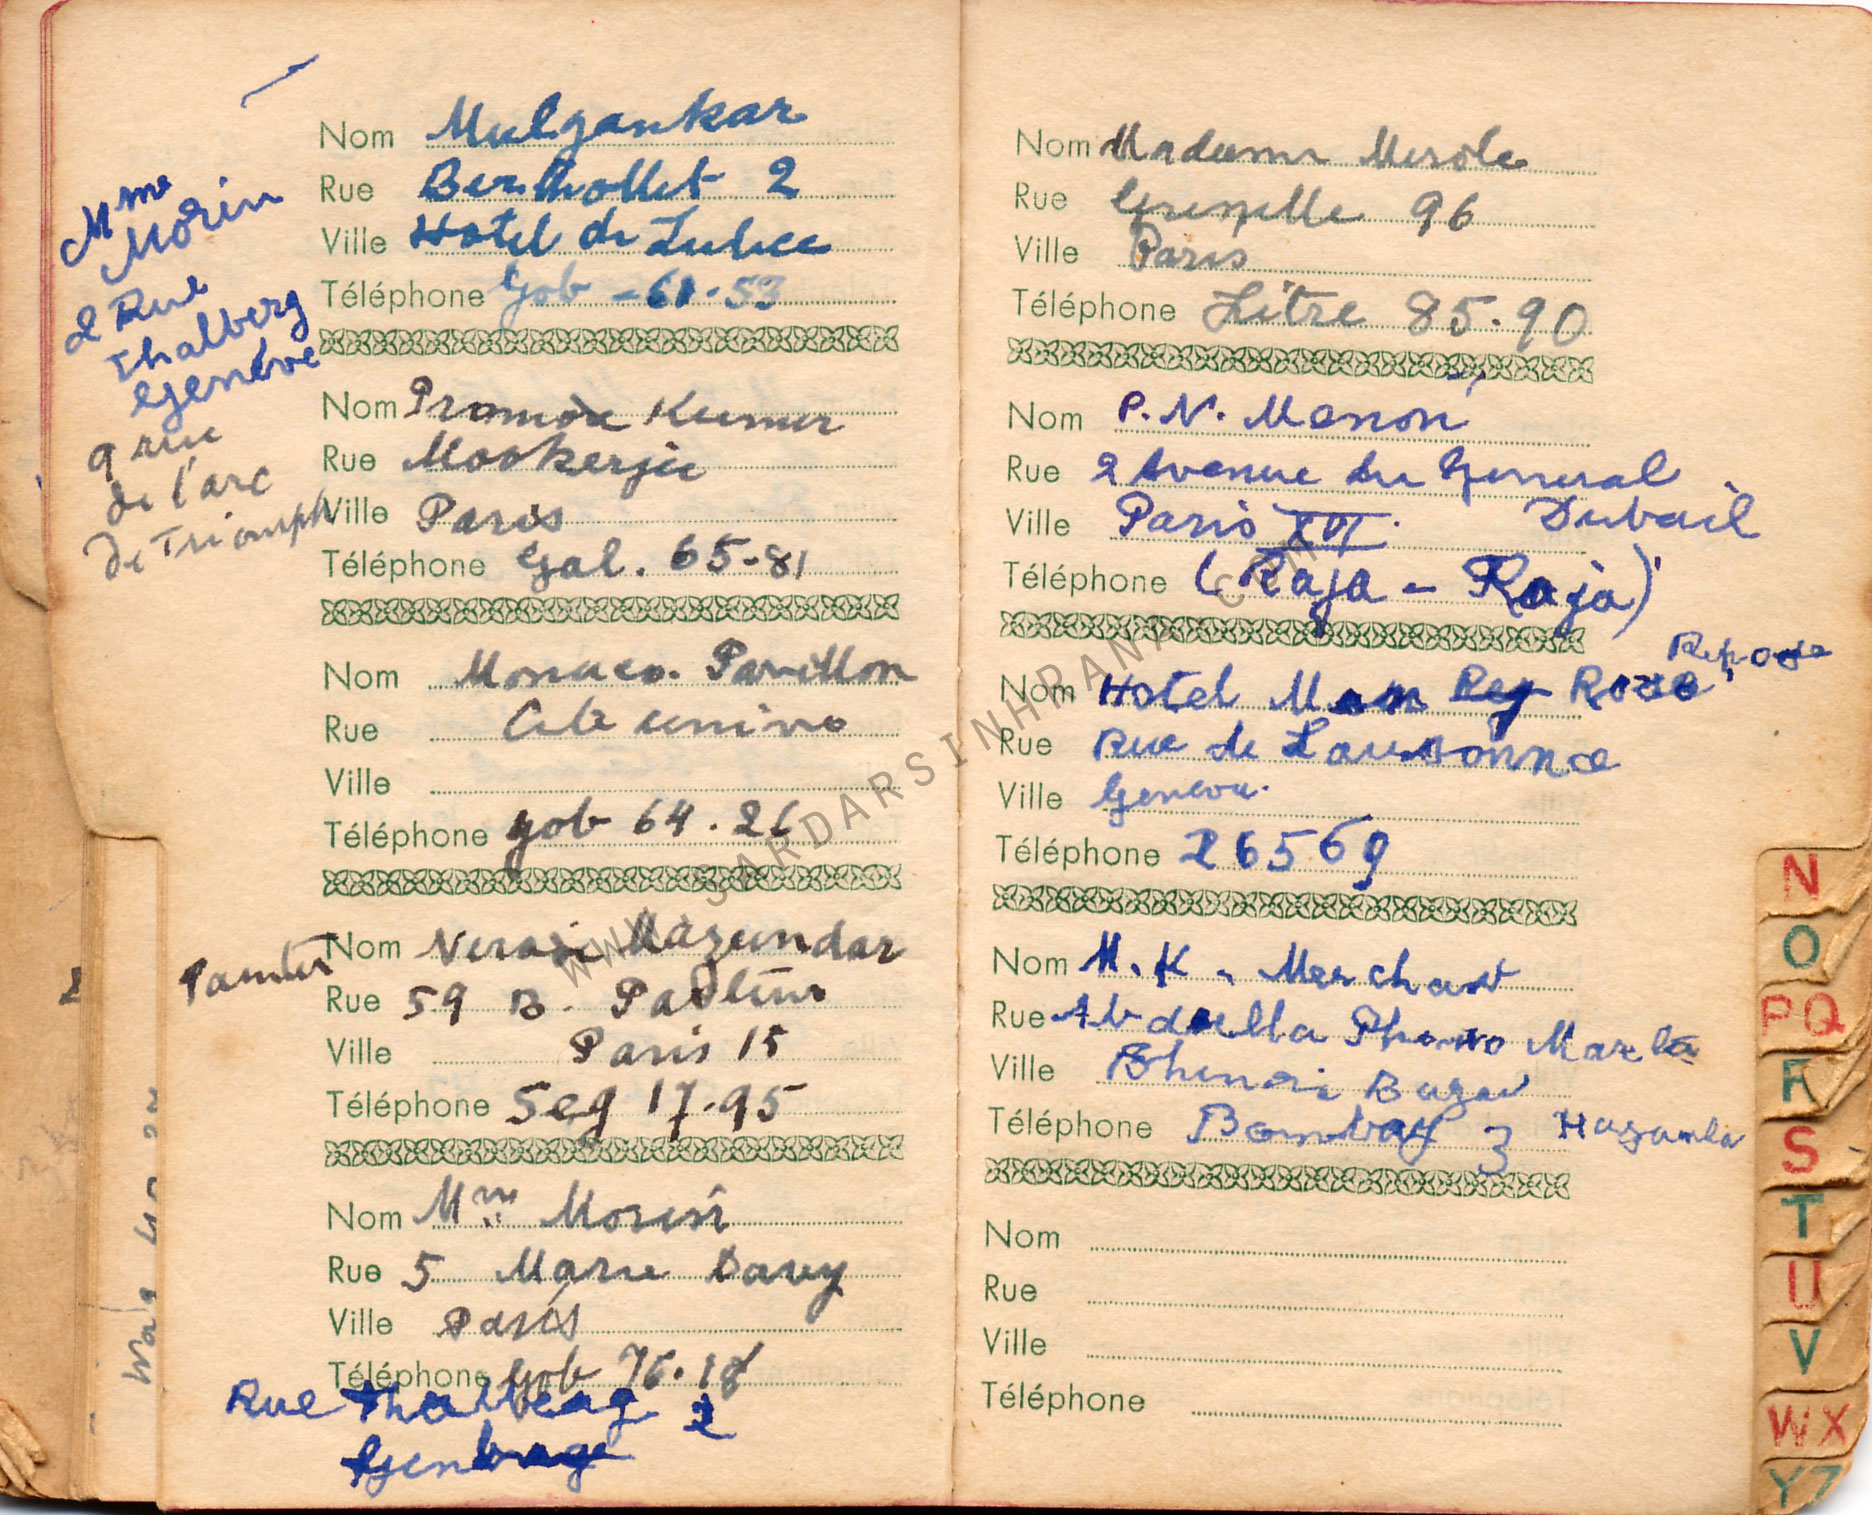 Mme
Morin
2 Rue
Thalberg
Genève
9 rue
de l'arc
de Triomph
Nom Mulgankar
Rue Berthollet 2
Ville Hotel de
Téléphone Gob - 61.53
Nom Promode Kumar
Rue Mookerjee
Ville Paris
Téléphone Gal. 65-81
Nom Monaco. Pavillon
Rue Cite univ
Ville
Téléphone gob 64.26
Painter
Nom Mazumdar
Rue 59 B. Pasteur
Ville Paris 15
Téléphone Seg 17.95
Nom Mme Morin
Rue 5 Marie Davy
Ville Paris
Téléphone Gob 76.18
Rue Thalberg 2
Nom Madame Merole
Rue Grenelle 96
Ville Paris
Téléphone Litre 85.90
Nom P. N. Menon
Rue 2 Avenue du General
Dubail
Ville Paris XVI
Téléphone (Raja - Raja)
Repose
Nom Hotel Mon
Rue Rue de Lausanne
Ville Geneva.
Téléphone 26569
Nom M. K. Merchant
Rue Abdulla
Ville Bhendi Bazar
Téléphone Bombay 3
Nom
Rue
Ville
Téléphone
N
O
PQ
R
S
T
U
V
WX
YZ
WWW.SARDARSINHRANA.COM